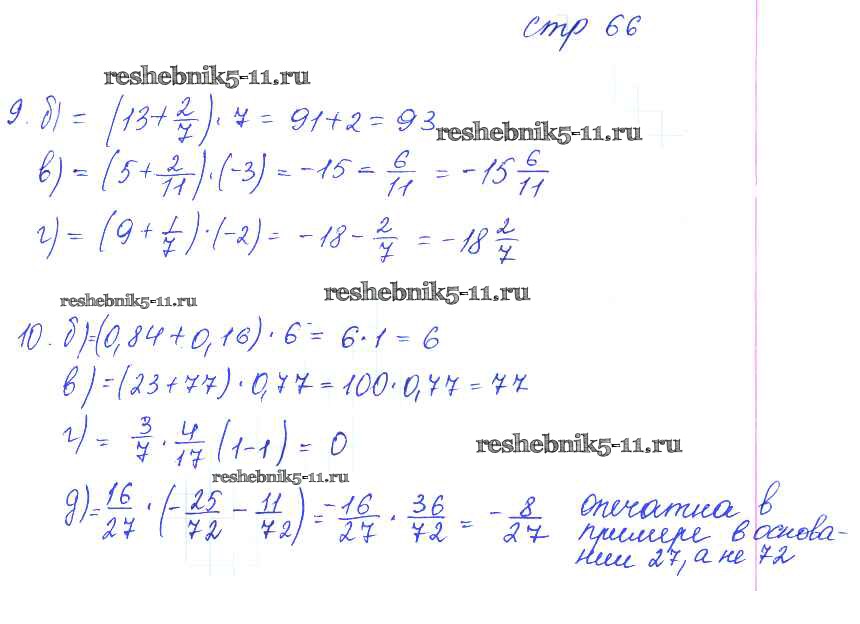 стр 66
reshebnik5-11.ru
9. б) = (13 + 2/7) · 7 = 91 + 2 = 93
reshebnik5-11.ru
в) = (5 + 2/11) · (-3) = -15 = 6/11 = -15 6/11
г) = (9 + 1/7) · (-2) = -18 - 2/7 = -18 2/7
reshebnik5-11.ru
reshebnik5-11.ru
10. б) = (0,84 + 0,16) · 6 = 6 · 1 = 6
в) = (23 + 77) · 0,77 = 100 · 0,77 = 77
г) = 3/7 · 4/17 (1 - 1) = 0
reshebnik5-11.ru
reshebnik5-11.ru
д) = 16/27 · (-25/72 - 11/72) = -16/27 · 36/72 = -8/27
опечатка в
примере в основа-
нии 27, а не 72